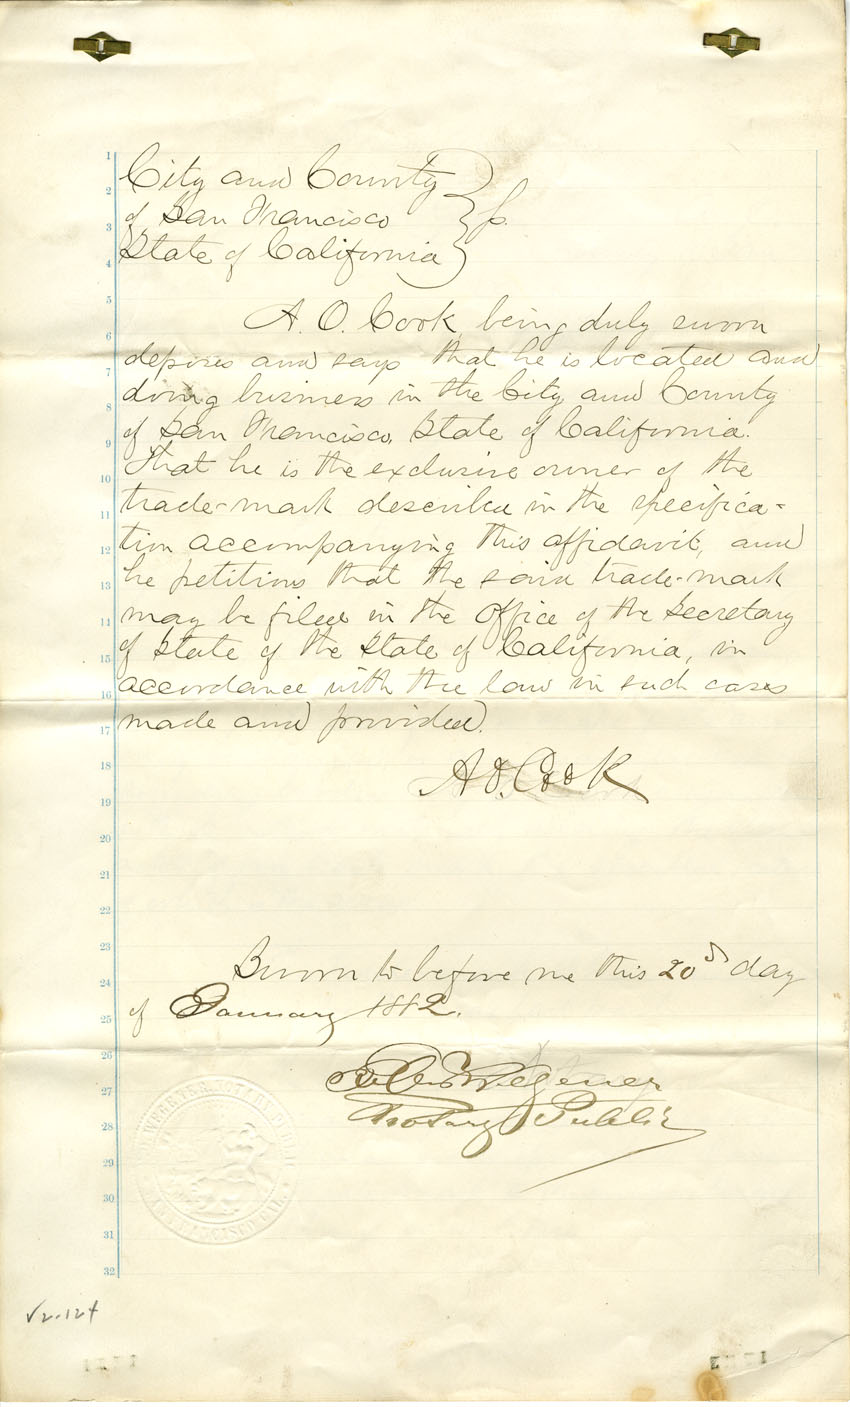 City and County
of San Francisco } ss.
State of California
A. O. Cook being duly sworn
deposes and says that he is located and
doing business in the City and County
of San Francisco, State of California.
That he is the exclusive owner of the
trade-mark described in the specifica-
tion accompanying this affidavit, and
he petitions that the said trade-mark
may be filed in the office of the Secretary
of State of the State of California, in
accordance with the law in such cases
made and provided.
A. O. Cook
Sworn to before me this 20 day
of January 1882.
Wegener
Notary Public
NOTARY PUBLIC
SAN FRANCISCO CAL.
1
2
3
4
5
6
7
8
9
10
11
12
13
14
15
16
17
18
19
20
21
22
23
24
25
26
27
28
29
30
31
32